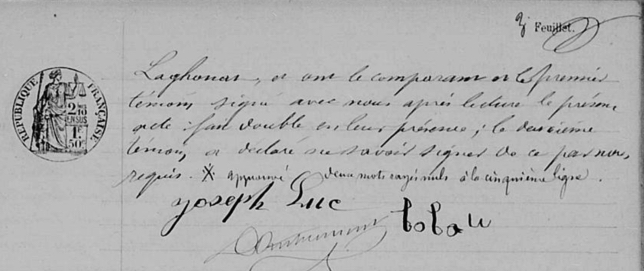 Feuillet.
RÉPUBLIQUE FRANÇAISE
2
EN SUS
1F
50
Laghouat, et ont le comparant et le premier
témoin signé avec nous après lecture le présent
acte fait double en leur présence ; le deuxième
témoin a déclaré ne savoir signer de ce par nous
requis. X approuvé deux mots rayés nuls à la cinquième ligne.
Joseph Luc